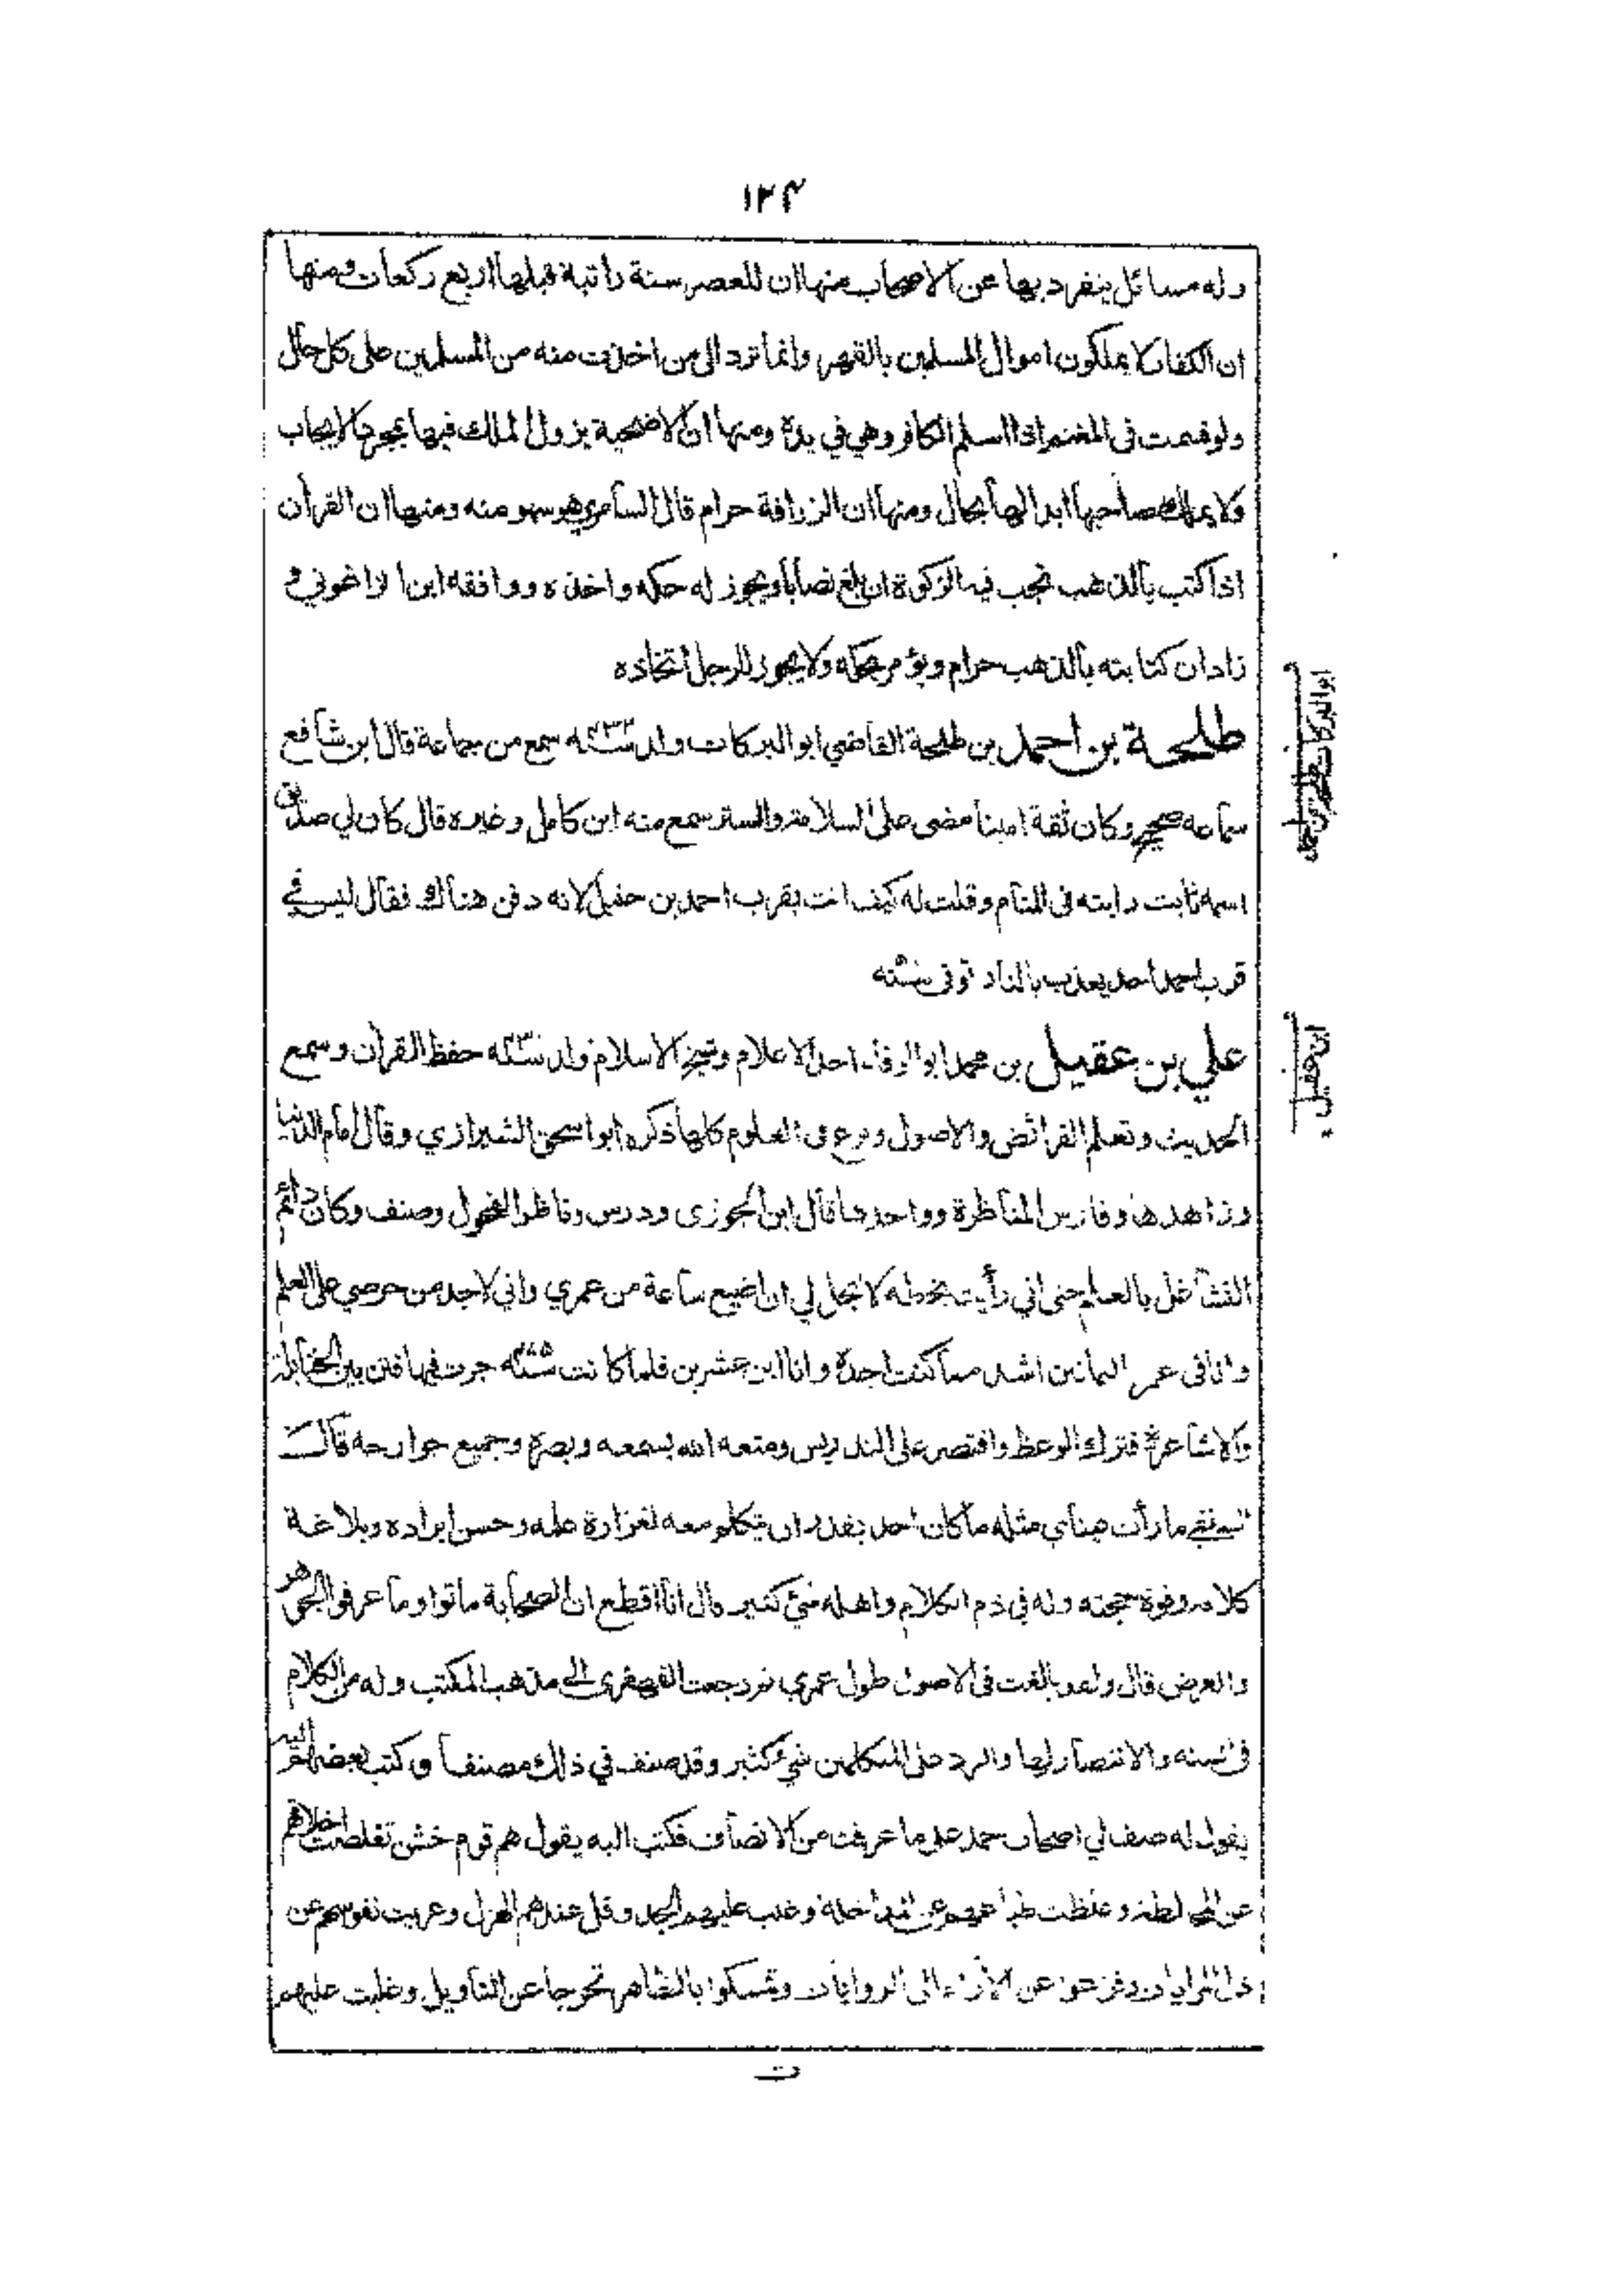 ١٢٣
وله مسائل ينفرد بها عن الاصحاب منها ان للعصر سنة راتبة قبلها اربع ركعات ومنها
ان الكفار لا يملكون اموال المسلمين بالقهر وانما ترد الى من اخذت منه من المسلمين على كل حال
ولو قسمت فى المغنم اذا اسلم الكافر وهي في يده ومنها ان الاضحية يزول الملك فيها بمجرد الايجاب
ولا يملك صاحبها ابدالها بحال ومنها ان الزرافة حرام قال السامري هو سهو منه ومنها ان القرآن
اذا كتب بالذهب تجب فيه الزكوة ان بلغ نصابا ويجوز له حكه واخذه ووافقه ابن الزاغوني و
زاد ان كتابته بالذهب حرام ويؤمر بحكه ولا يجوز للرجل اتخاذه
طلحة بن احمد بن طلحة القاضي ابو البركات ولد سنة ٤٣٢ سمع من جماعة قال ابن شافع
سماعه صحيح وكان ثقة امينا مضى على السلامة والستر سمع منه ابن كامل وغيره قال كان لي صديق
اسمه ثابت رايته فى المنام وقلت له كيف انت بقرب احمد بن حنبل لانه دفن هناك فقال ليس في
قرب احمد احد يعذب بالنار توفى سنة
علي بن عقيل بن محمد ابو الوفاء احد الاعلام وشيخ الاسلام ولد سنة حفظ القرآن وسمع
الحديث وتعلم الفرائض والاصول وبرع فى العلوم كلها ذكره ابو اسحق الشيرازي وقال امام الدنيا
وزاهدها وفارس المناظرة وواحدها قال ابن الجوزى ودرس وناظر الفحول وصنف وكان دائم
التشاغل بالعلم حتى اني رأيت بخطه لا يحل لي ان اضيع ساعة من عمري واني لاجد من حرصي على العلم
وانا فى عمر الثمانين اشد مما كنت اجده وانا ابن عشرين فلما كانت سنة جرت فيها فتن بين الحنابلة
والاشاعرة فترك الوعظ واقتصر على التدريس ومتعه الله بسمعه وبصره وجميع جوارحه قال
ما رأت عيناي مثله ما كان احد يقدر ان يتكلم معه لغزارة علمه وحسن ايراده وبلاغة
كلامه وقوة حجته وله في ذم الكلام واهله شيء كثير قال انا اقطع ان الصحابة ماتوا وما عرفوا الجوهر
والعرض قال ولقد بالغت فى الاصول طول عمري ثم رجعت القهقرى الى مذهب المكتب وله من الكلام
فى السنه والانتصار لها والرد على المتكلمين شيء كثير وقد صنف في ذلك مصنفا وكتب بعضهم اليه
يقول له صف لي اصحاب احمد على ما عرفت من الانصاف فكتب اليه يقول هم قوم خشن تقلصت اخلاقهم
عن المخالطة وغلظت طباعهم عن المداخلة وغلب عليهم الجد وقل عندهم الهزل وعريت نفوسهم عن
ذل المراياة وفزعوا عن الآراء الى الروايات وتمسكوا بالظاهر تحرجا عن التاويل وغلبت عليهم
ابن عقيل